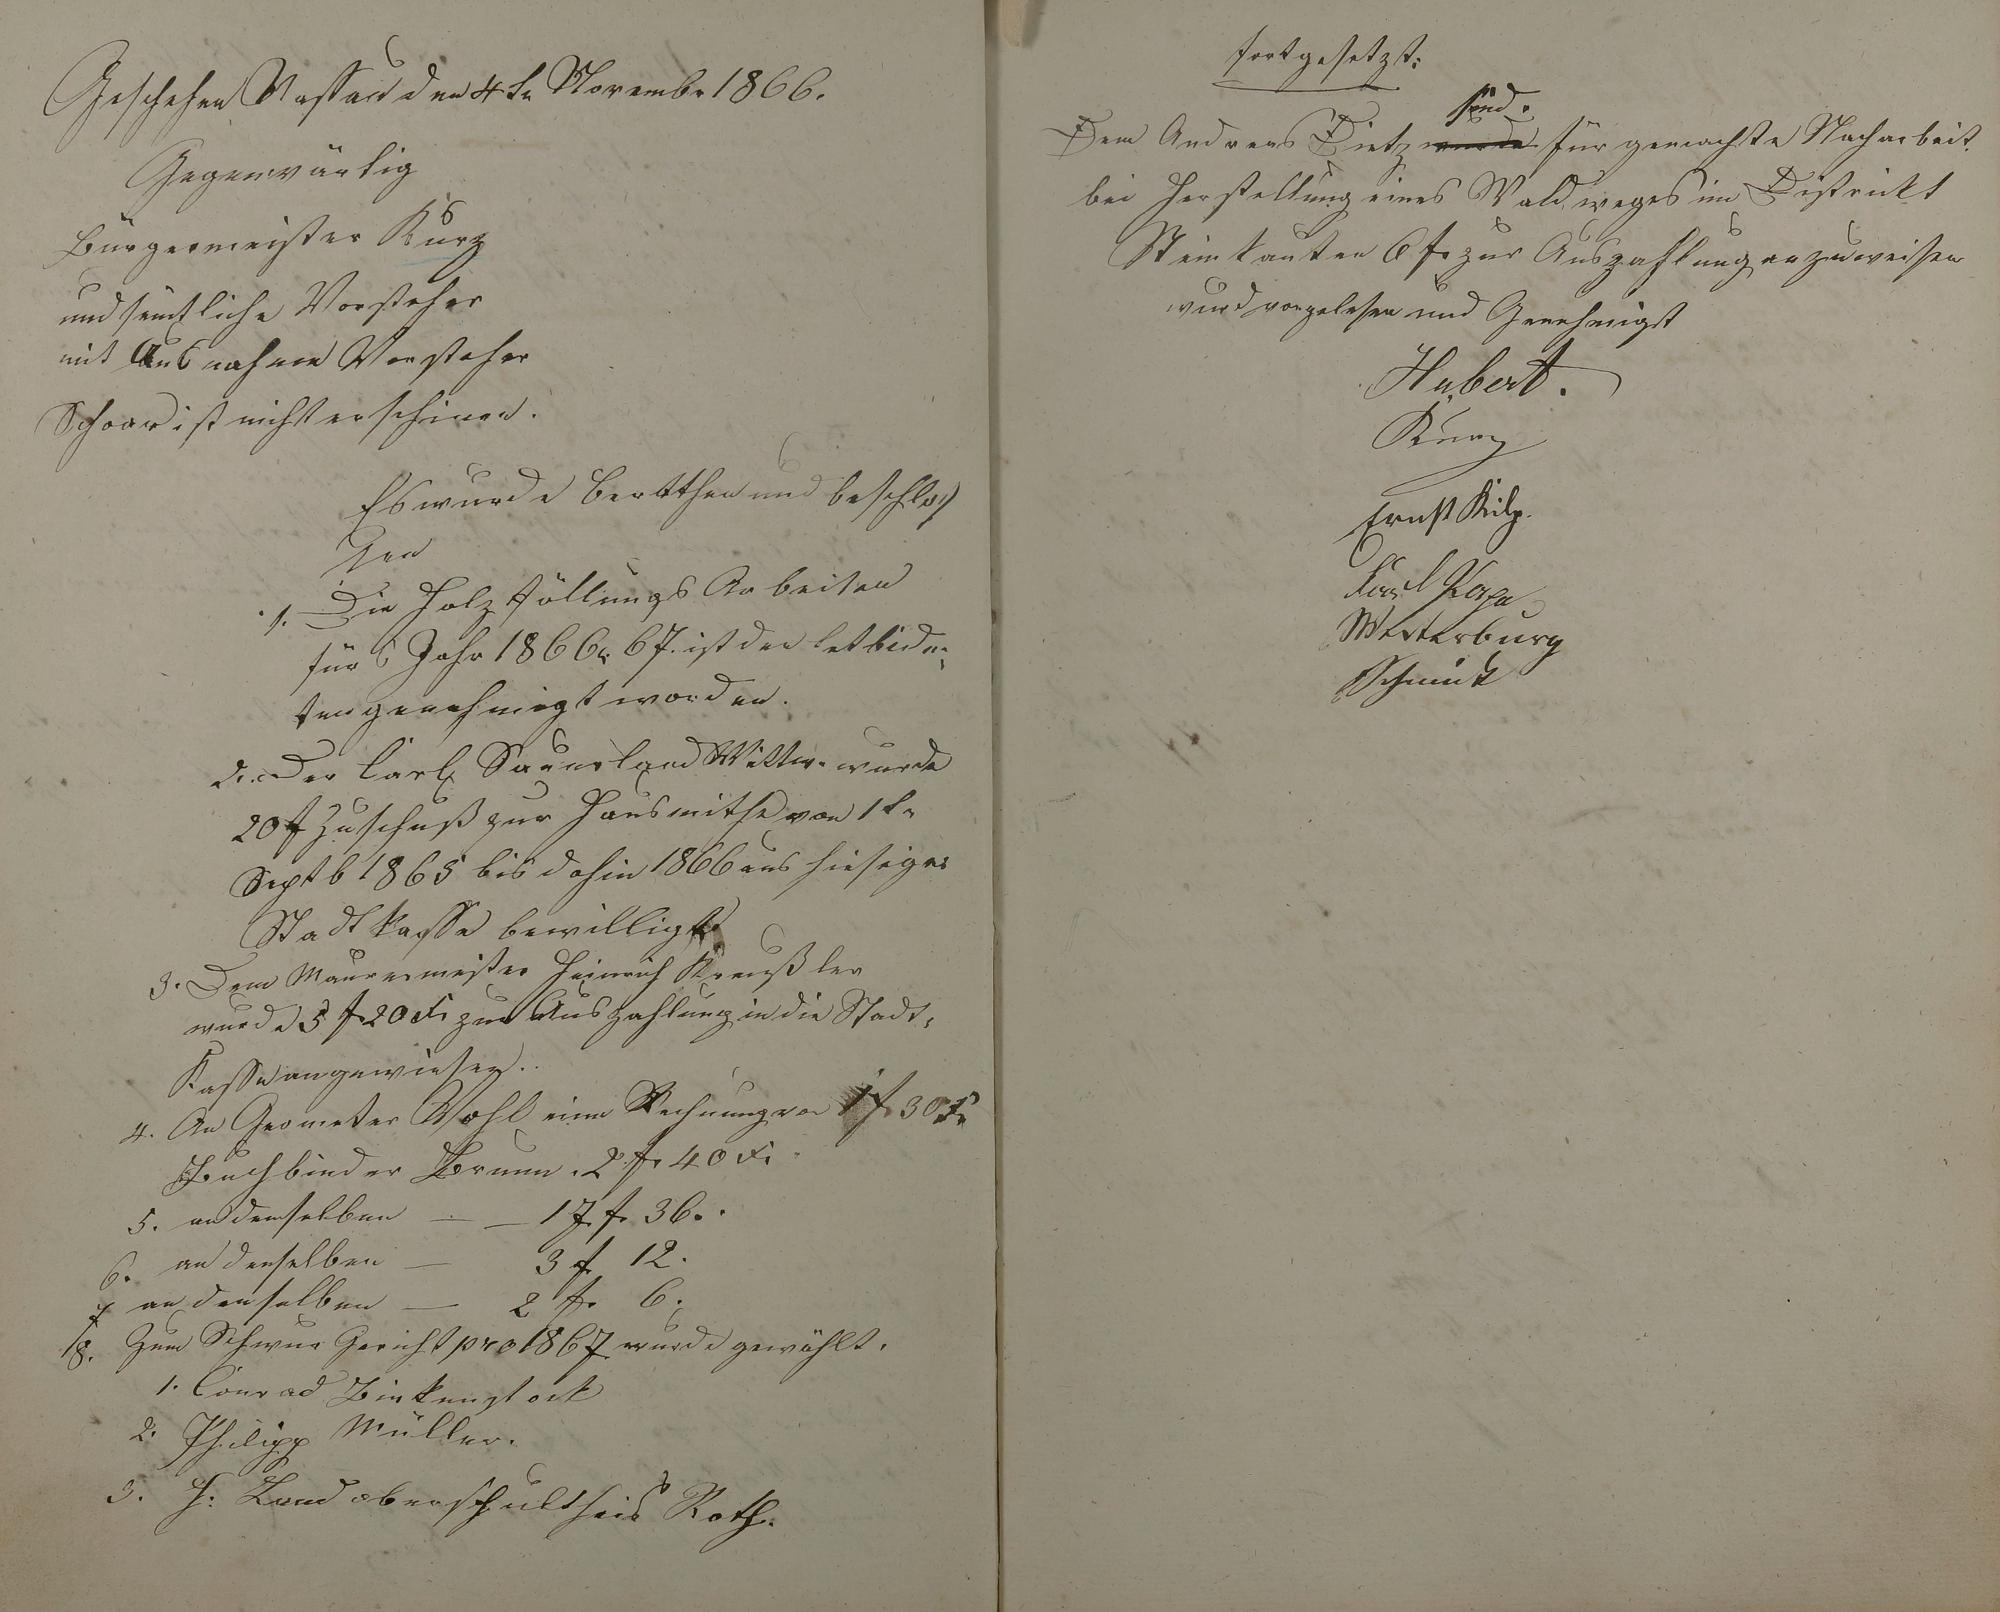 Geschehen Nassau den 4tn Novembr 1866.
Gegenwärtig
Bürgermeister Kurz
und sämtliche Vorsteher
mit Ausnahme Vorsteher
Schaar ist nicht erschinen.
Es wurde berathen und beschlos
sen
1. Die Holzfällungs Arbeiten
fürs Jahr 1866/67. ist den
ten genehmigt worden.
2. Der Carl Sauerland Wittw. wurde
20 f Zuschuß zur Hausmithe von 1tn
Septb 1865 bis dahin 1866 aus hiesiger
Stadtkasse bewilligt
3. Dem Maurermeister Heinrich Kreußler
wurde 5 f 20 x zur Auszahlung in die Stadt-
Kasse angewiesen.
4. An Geometer Vohl eine Rechnung von 1 f. 30 x
Buchbinder Brumm. 2 f. 40 x.
5. an denselben — — 17 f. 36.
6. an denselben — 3 f 12.
7 an denselben — 2 f. 6.
8. Zum Schwur Gericht pro 1867 wurde gewählt.
1. Conrad Birkenstock
2. Philipp Müller.
3. H: Landoberschultheis Roth.
fortgesetzt:
sind.
Dem Andreas Dietz wurde für gemachte Nacharbeit
bei Herstellung eines Waldweges im Districkt
Steinkauten 6 f. zur Auszahlung anzuweisen
wurd vorgelesen und Genehmigt
Hubert.
Kurz
Ernst Kilp.
Karl
Westerburg
Schmidt